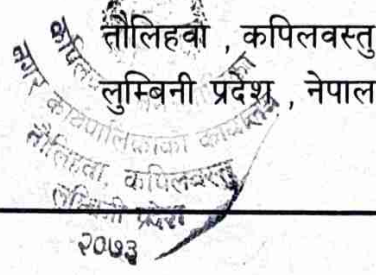 तौलिहवा , कपिलवस्तु
लुम्बिनी प्रदेश , नेपाल
नगर कार्यपालिकाको कार्यालय
तौलिहवा, कपिलवस्तु
लुम्बिनी प्रदेश
२०७३